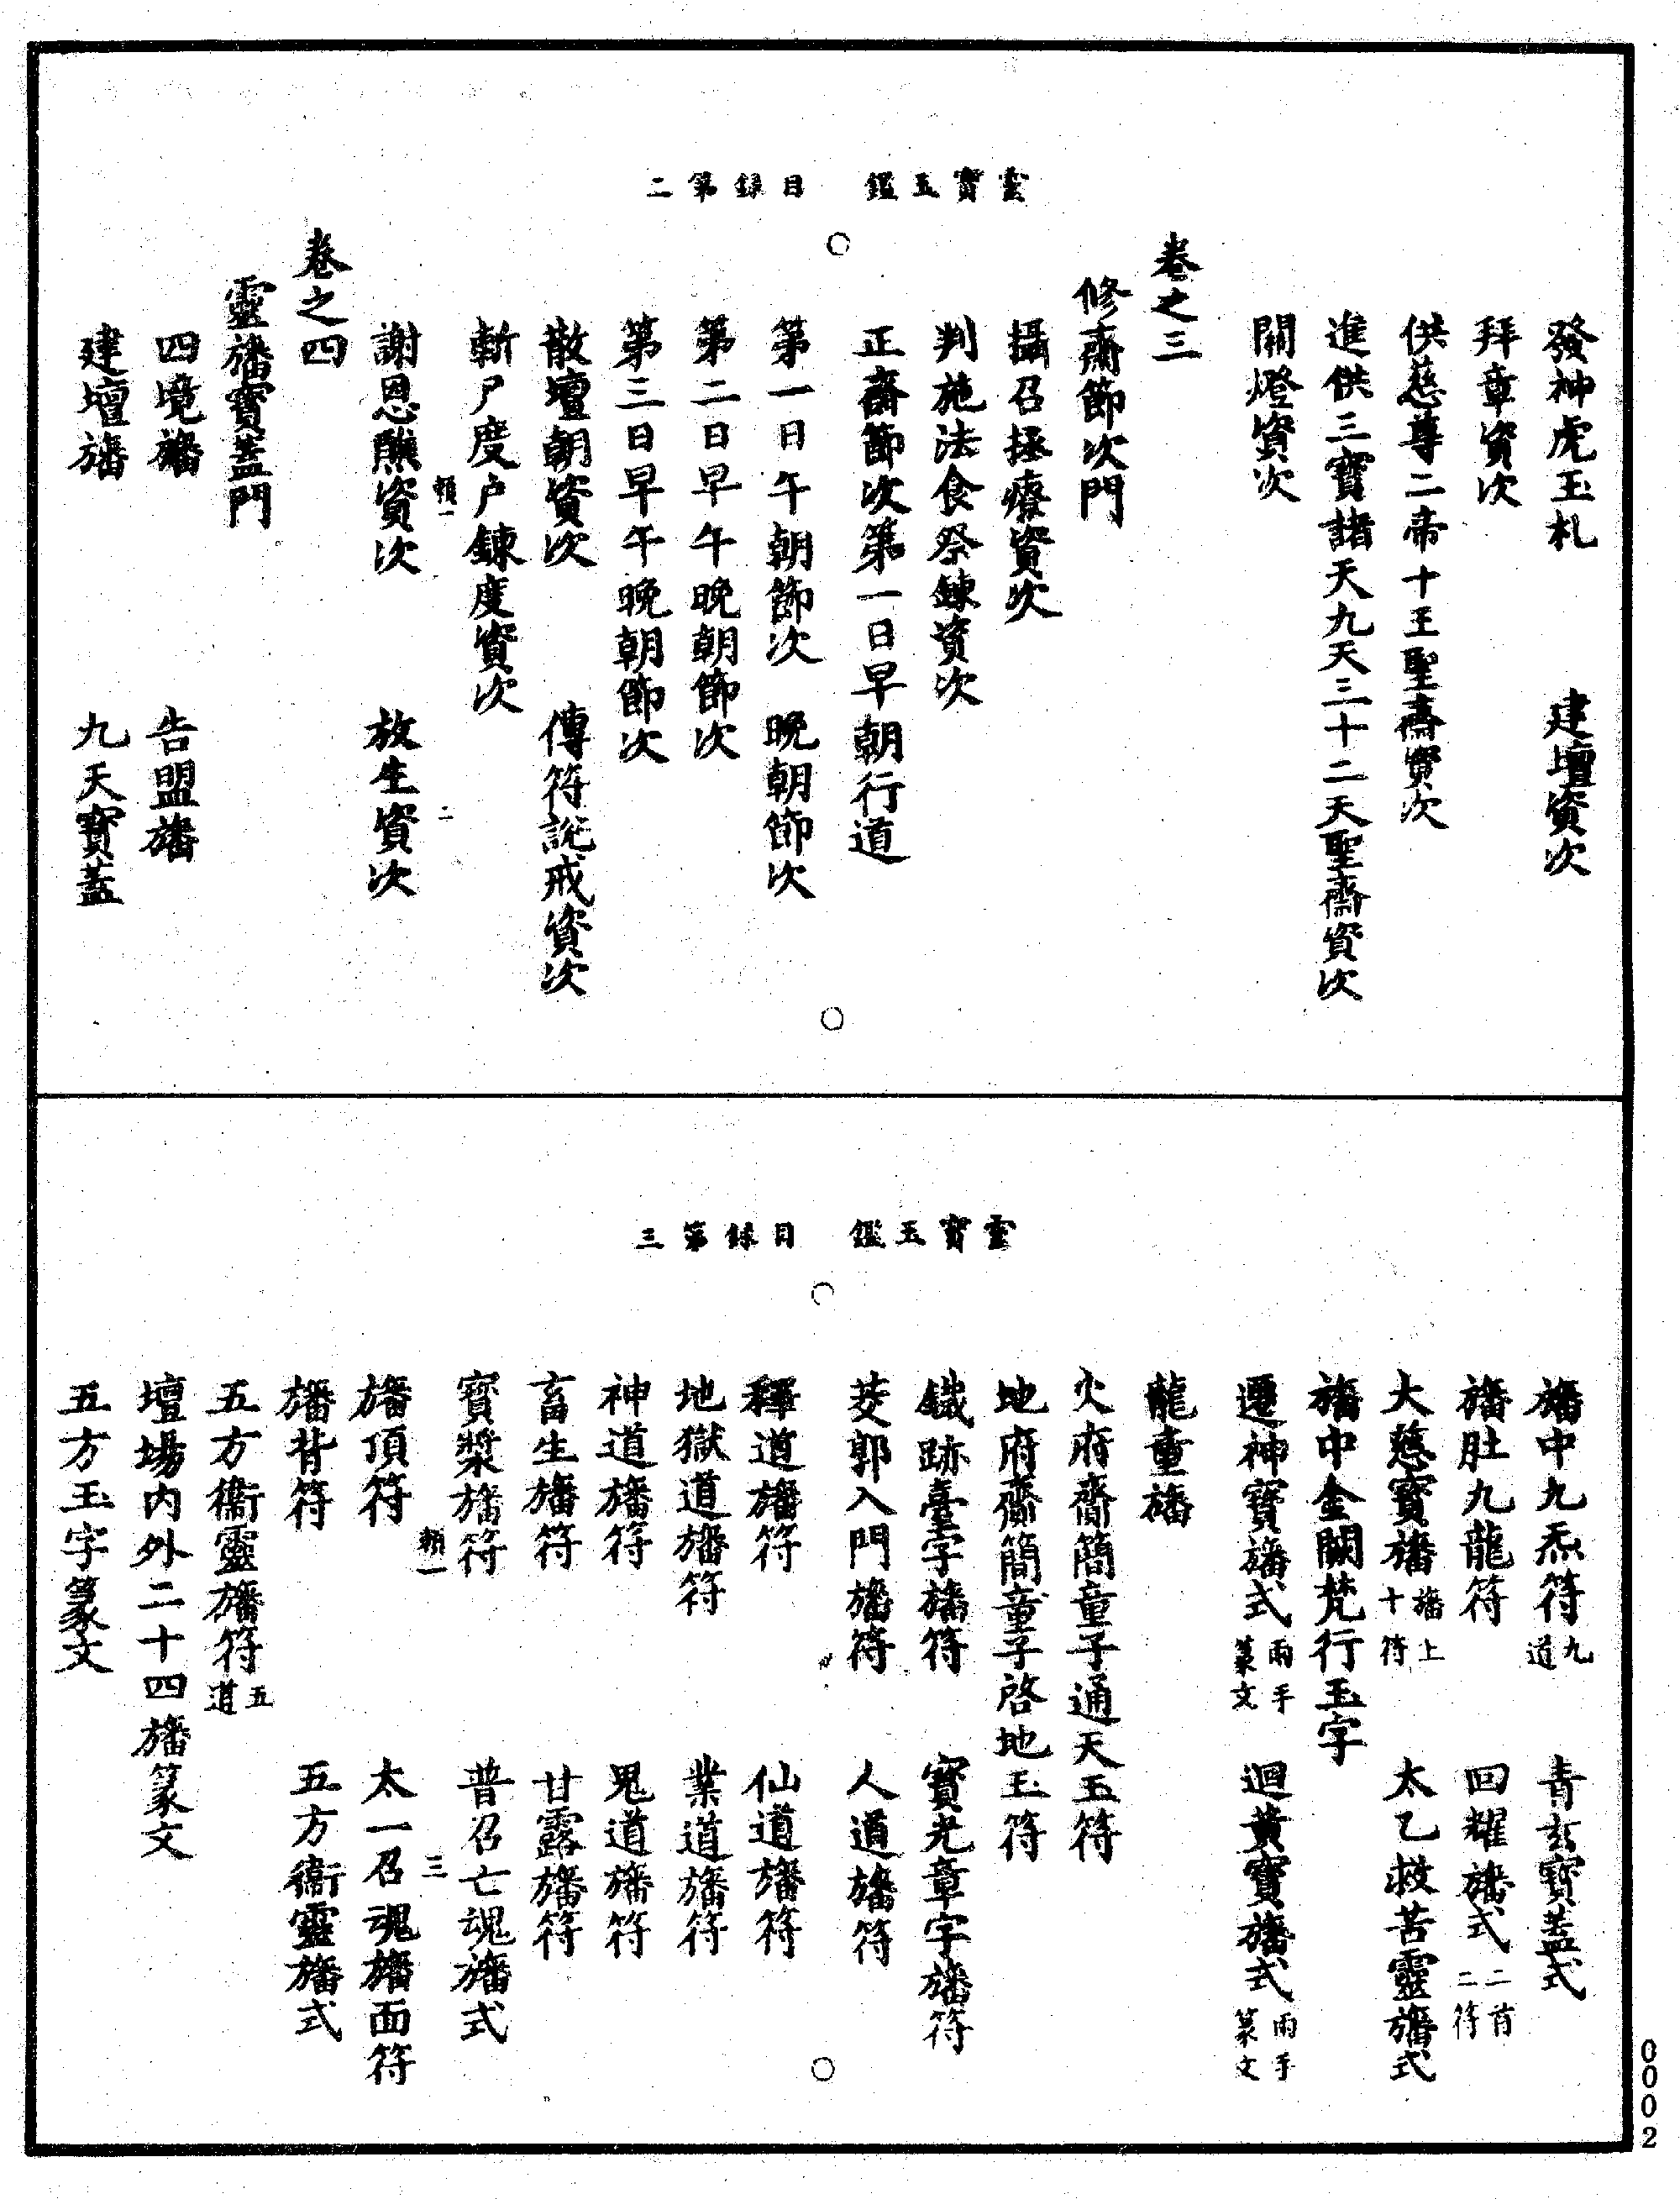 靈寶玉鑑　目錄第二
發神虎玉札　建壇資次
拜章資次
供慈尊二帝十王聖齋資次
進供三寶諸天九天三十二天聖齋資次
關燈資次
卷之三
修齋節次門
攝召拯療資次
判施法食祭鍊資次
正齋節次第一日早朝行道
第一日午朝節次　晚朝節次
第二日早午晚朝節次
第三日早午晚朝節次
散壇朝資次　傳符說戒資次
斬尸度户鍊度資次
賴一　二
謝恩醮資次　放生資次
卷之四
靈旛寶蓋門
四境旛　告盟旛
建壇旛　九天寶蓋
靈寶玉鑑　目錄第三
旛中九炁符九道　青玄寶蓋式
旛肚九龍符　回耀旛式二首二符
大慈寶旛旛上十符　太乙救苦靈旛式
旛中金闕梵行玉字
遷神寶旛式兩手篆文　迴黃寶旛式兩手篆文
龍童旛
火府齋簡童子通天玉符
地府齋簡童子啓地玉符
鐵跡臺字旛符　寶光章字旛符
茭郭入門旛符　人道旛符
釋道旛符　仙道旛符
地獄道旛符　業道旛符
神道旛符　鬼道旛符
畜生旛符　甘露旛符
寶漿旛符　普召亡魂旛式
賴一　三
旛頂符　太一召魂旛面符
旛背符　五方衞靈旛式
五方衞靈旛符五道
壇場内外二十四旛篆文
五方玉字篆文
0002